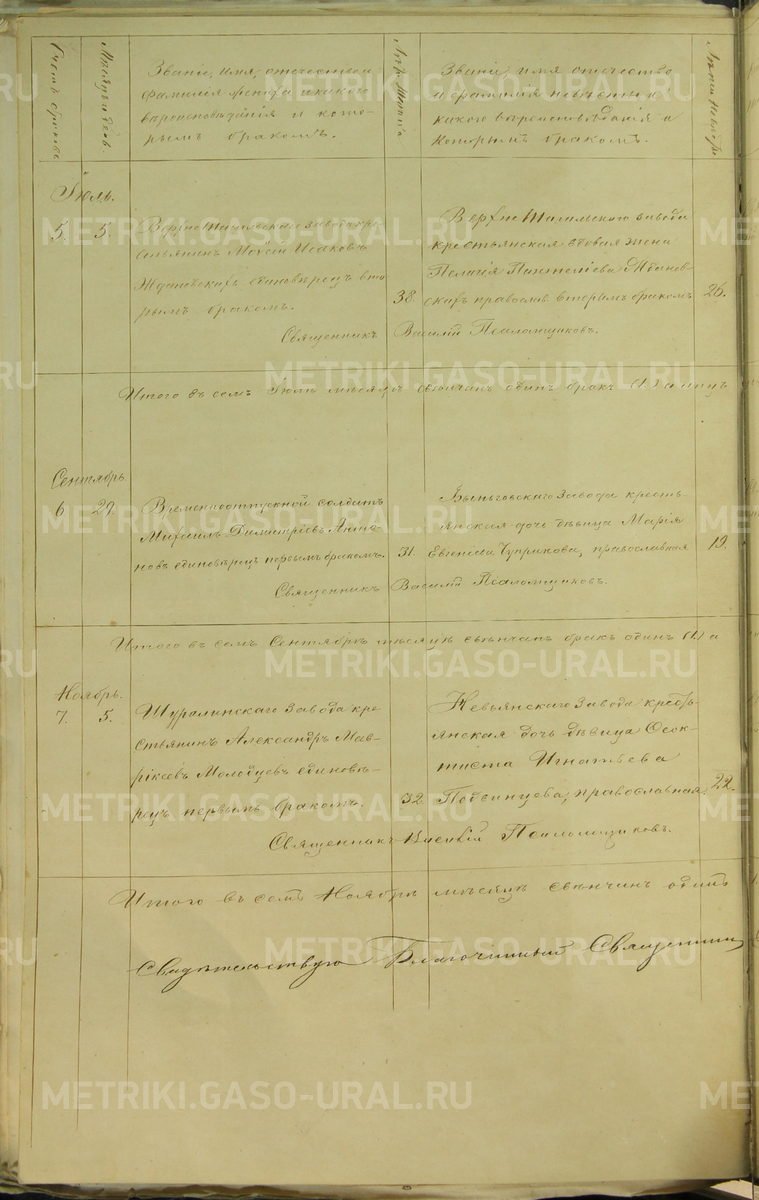 Счетъ браковъ
Мѣсяцъ и день.
Званіе, имя, отечество и
фамилія жениха и какого
вѣроисповѣданія и кото-
рымъ бракомъ.
Лѣта жениха
Званіе, имя отечество
и фамилія невѣсты и
какого вѣроисповѣданія и
которымъ бракомъ.
Лѣта невѣсты
Іюль.
5. 5.
Верхне Тагильскаго завода кре-
стьянинъ Моисей Исаковъ
единовѣрецъ вто-
рымъ бракомъ.
38.
Верхне Тагильскаго завода
крестьянская вдовая жена
Пелагія Пантелѣева
православ. вторымъ бракомъ
26.
Священникъ Василій Псаломщиковъ.
Итого въ семъ Іюлѣ мѣсяцѣ свѣнчанъ одинъ бракъ (1.) а
Сентябрь
6 29.
Временноотпускной солдатъ
Михаилъ Димитріевъ
новъ единовѣрецъ первымъ бракомъ.
31.
Быньговскаго завода кресть-
янская дочь дѣвица Марія
Евгеніева Чуприкова, православная
19.
Священникъ Василій Псаломщиковъ.
Итого въ семъ Сентябрѣ мѣсяцѣ свѣнчанъ бракъ одинъ (1.) а
Ноябрь.
7. 5.
Шуралинскаго завода кре
стьянинъ Александръ Мав-
рикіевъ Молодцевъ единовѣ-
рецъ первымъ бракомъ.
32
Невьянскаго завода кресть-
янская дочь дѣвица Ѳеок-
тиста Игнатьева
Подвинцева, православная.
22.
Священникъ Василій Псаломщиковъ.
Итого въ семъ Ноябрѣ мѣсяцѣ свѣнчанъ одинъ
Свидѣтельствую Благочинный Священник
METRIKI.GASO-URAL.RU